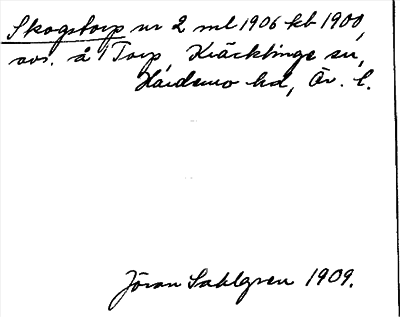 Skogstorp nr 2 ml 1906 kb 1900,
avs. å Torp, Kräcklinge sn,
Hardemo hd, Ör. l.
Jöran Sahlgren 1909.